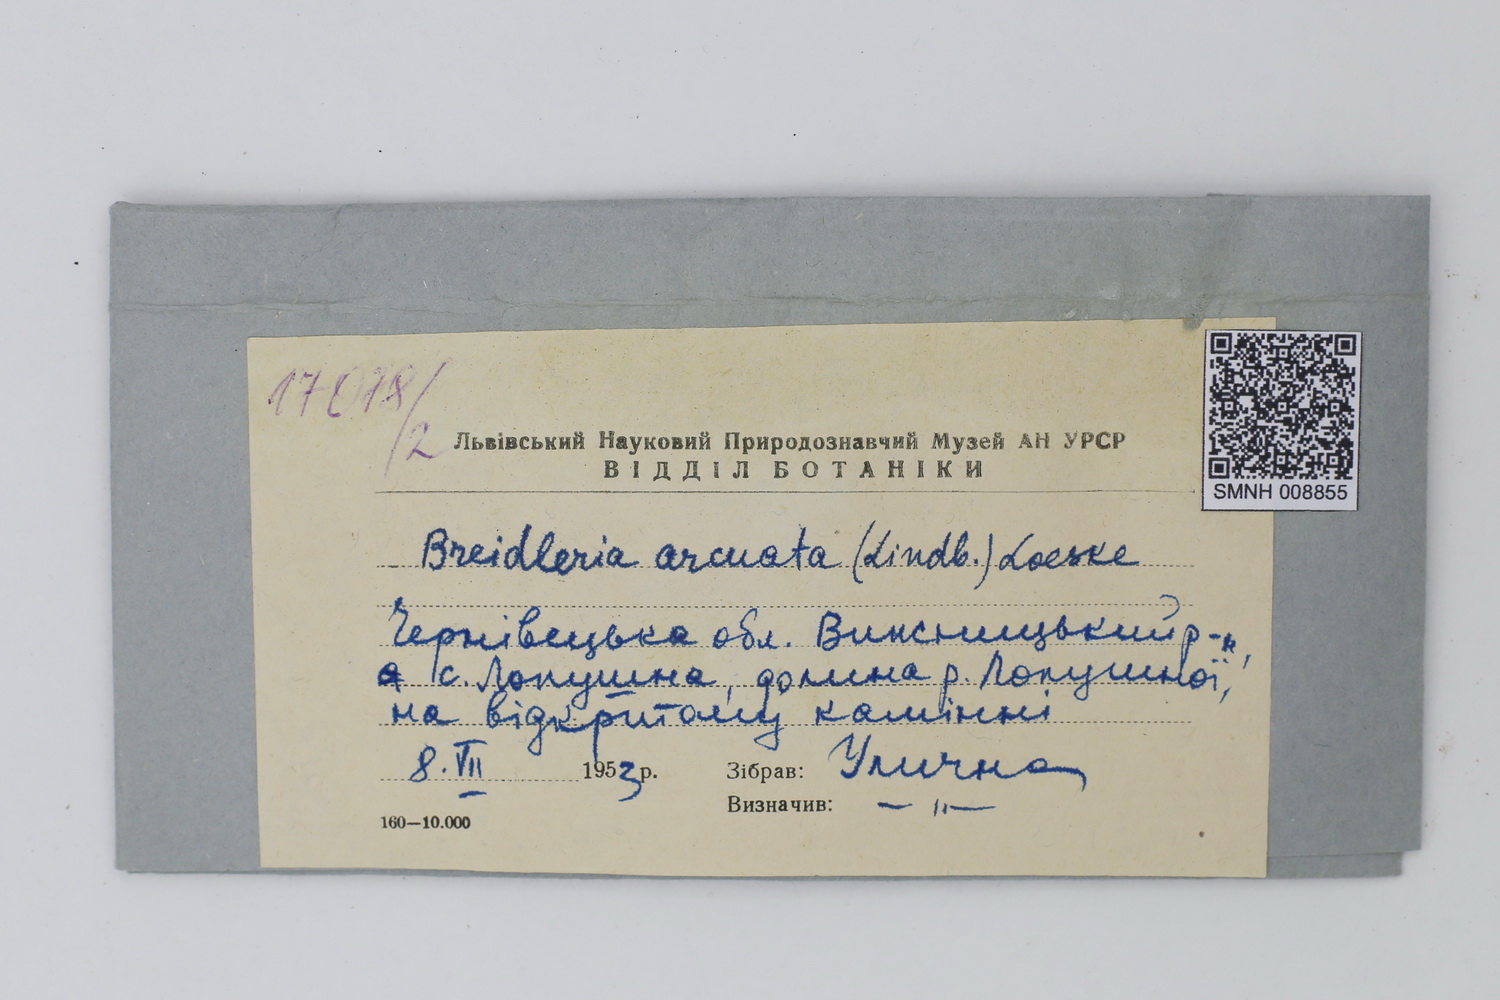 17078/2
Львівський Науковий Природознавчий Музей АН УРСР
ВІДДІЛ БОТАНІКИ
SMNH 008855
Breidleria arcuata (Lindb.) Loeske
Чернівецька обл. Вижницький р-н,
с. Лопушна, долина р. Лопушної,
на відкритому камінні
8.VII 1953 р. Зібрав: Улична
Визначив: — „ —
160—10.000